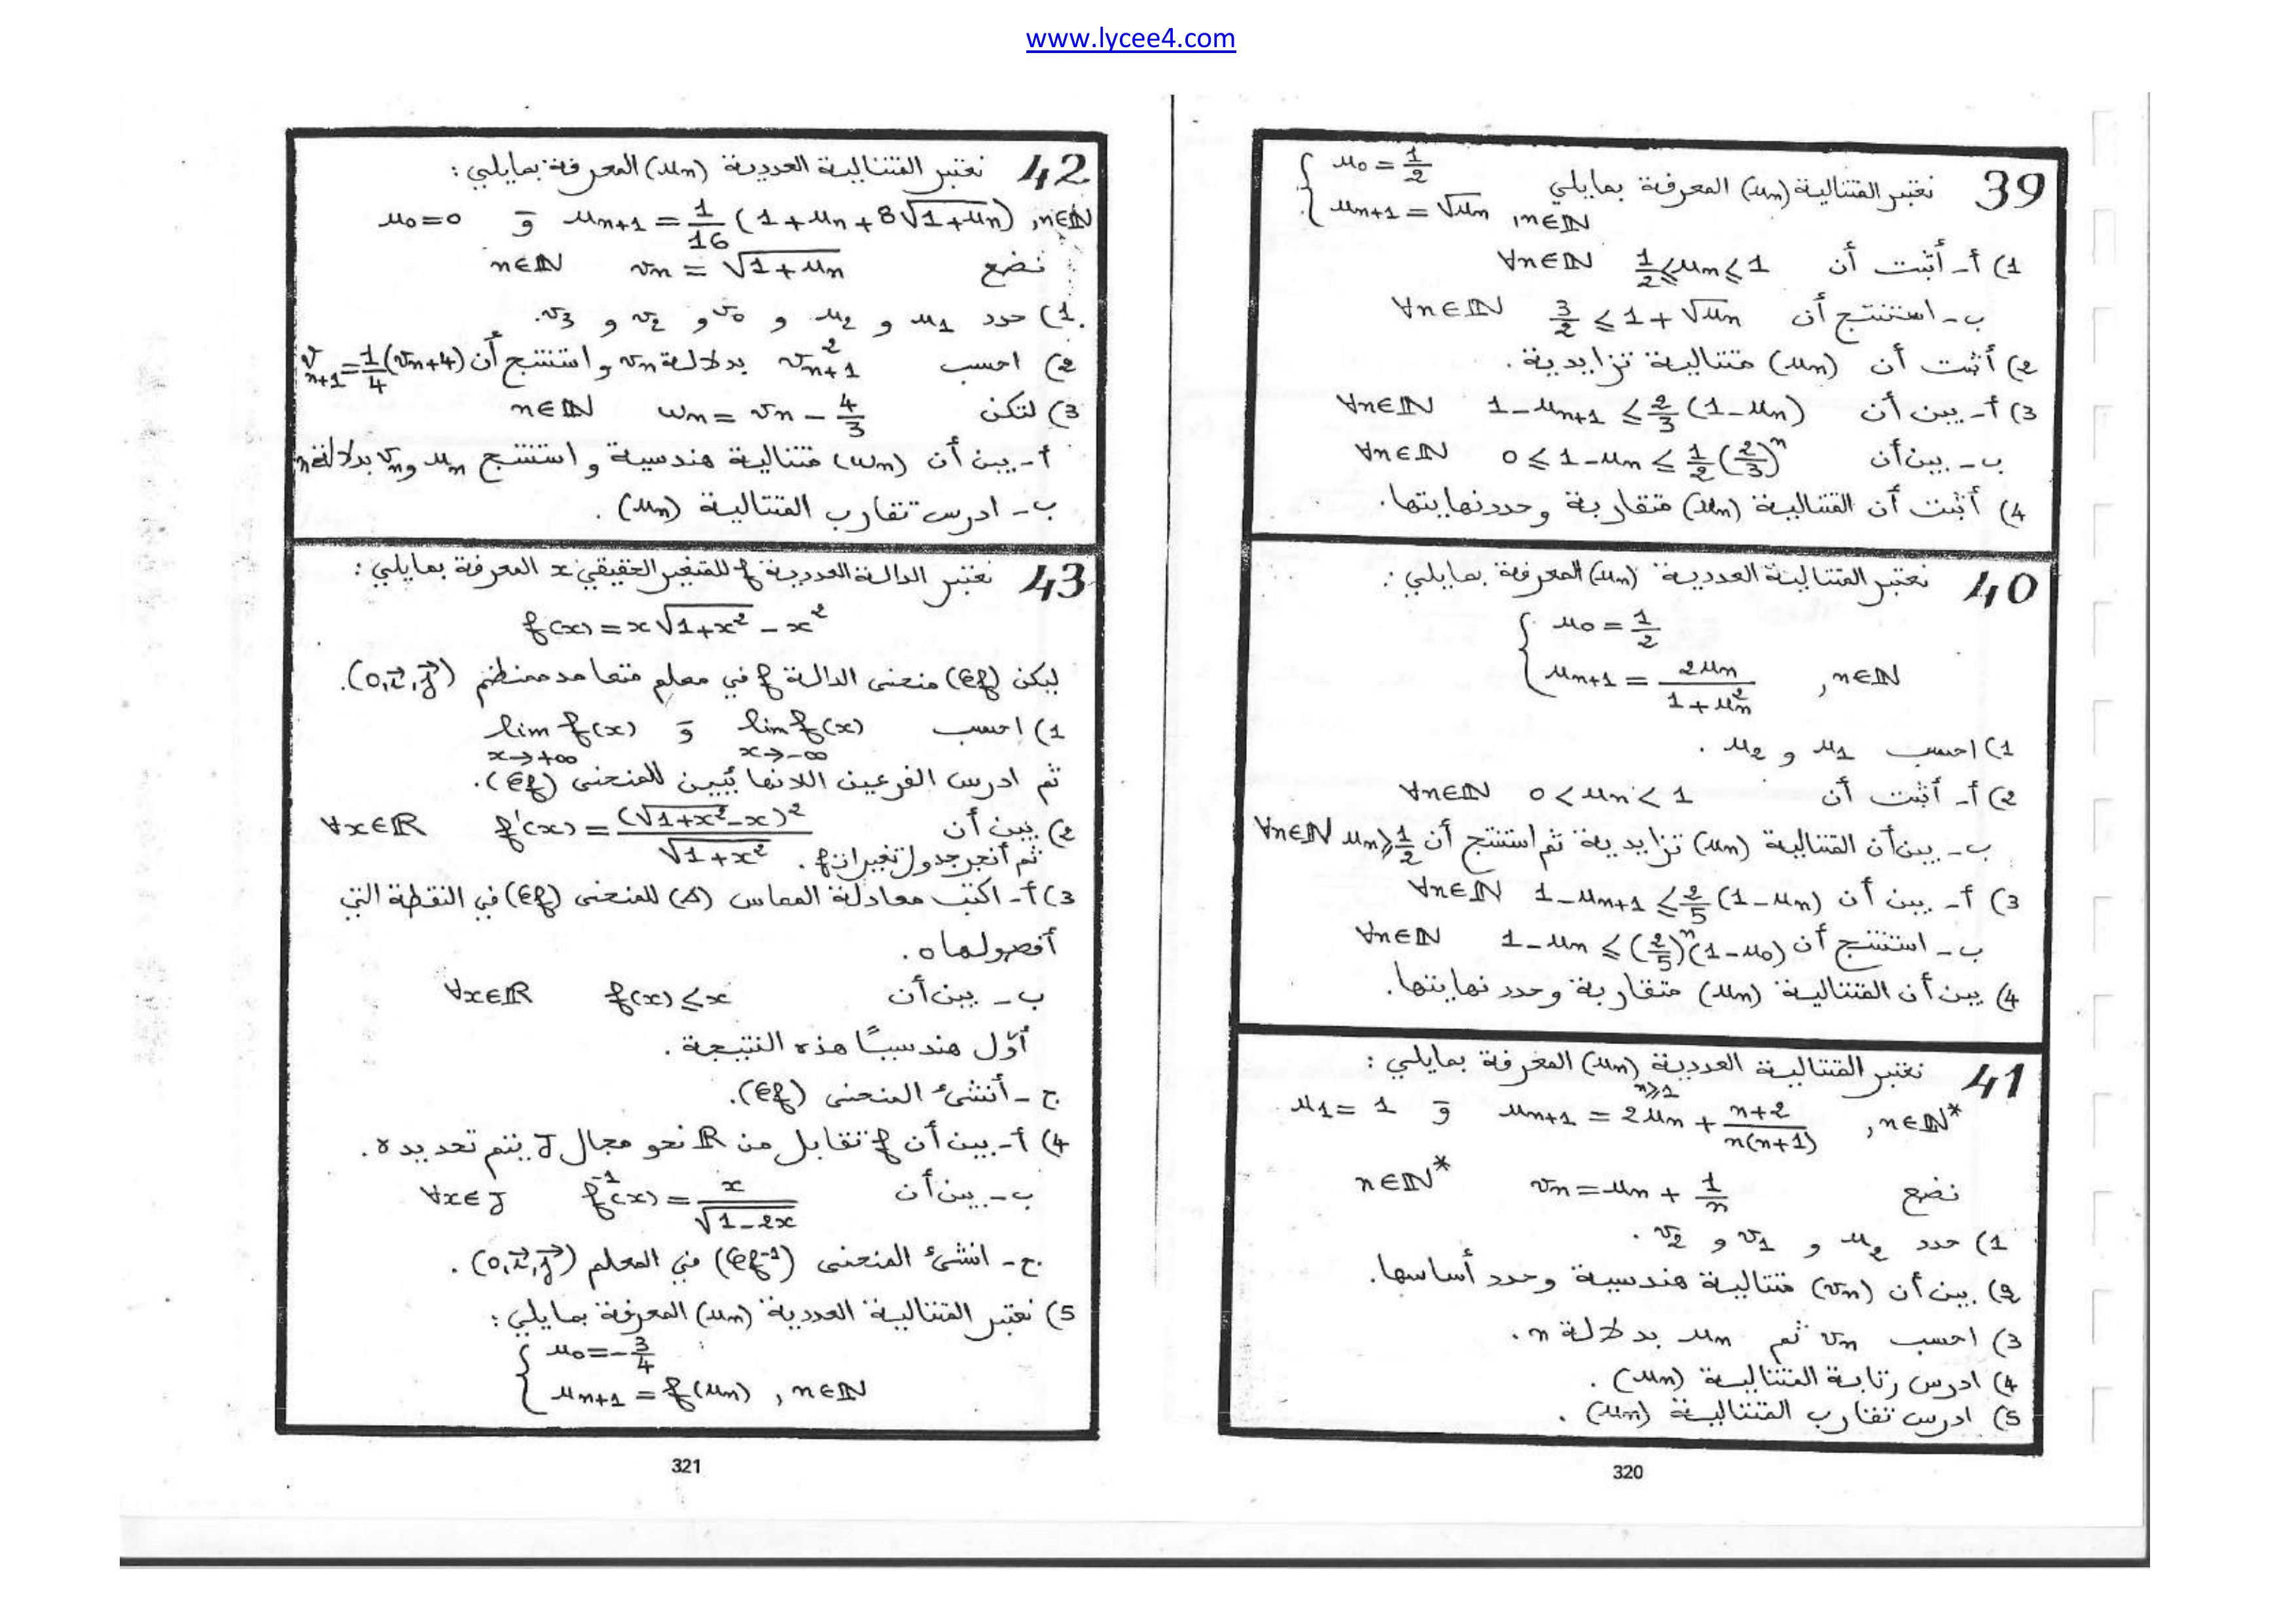 www.lycee4.com
39 نعتبر المتتالية (uₙ) المعرفة بمايلي
{ u₀ = 1/2
uₙ₊₁ = √uₙ , n∈ℕ
1) أ- أثبت أن 1/2 ⩽ uₙ ⩽ 1 ∀n∈ℕ
ب- استنتج أن 3/2 ⩽ 1+√uₙ ∀n∈ℕ
2) أثبت أن (uₙ) متتالية تزايدية .
3) أ- يبين أن 1-uₙ₊₁ ⩽ 2/3 (1-uₙ) ∀n∈ℕ
ب- بين أن 0 ⩽ 1-uₙ ⩽ 1/2 (2/3)ⁿ ∀n∈ℕ
4) أثبت أن المتتالية (uₙ) متقاربة وحدد نهايتها.
40 نعتبر المتتالية العددية (uₙ) المعرفة بمايلي :
{ u₀ = 1/2
uₙ₊₁ = 2uₙ/(1+uₙ²) , n∈ℕ
1) احسب u₁ و u₂ .
2) أ- أثبت أن 0 < uₙ < 1 ∀n∈ℕ
ب- بين أن المتتالية (uₙ) تزايدية ثم استنتج أن uₙ ⩾ 1/2 ∀n∈ℕ
3) أ- يبين أن 1-uₙ₊₁ ⩽ 2/5 (1-uₙ) ∀n∈ℕ
ب- استنتج أن 1-uₙ ⩽ (2/5)ⁿ(1-u₀) ∀n∈ℕ
4) يبن أن المتتالية (uₙ) متقاربة وحدد نهايتها.
41 نعتبر المتتالية العددية (uₙ)ₙ⩾₁ المعرفة بمايلي :
u₁ = 1 و uₙ₊₁ = 2uₙ + (n+2)/(n(n+1)) , n∈ℕ*
نضع vₙ = uₙ + 1/n n∈ℕ*
1) حدد u₂ و v₁ و v₂ .
2) بين أن (vₙ) متتالية هندسية وحدد أساسها.
3) احسب vₙ ثم uₙ بدلالة n.
4) ادرس رتابة المتتالية (uₙ) .
5) ادرس تقارب المتتالية (uₙ) .
320
42 نعتبر المتتالية العددية (uₙ) المعرفة بمايلي :
u₀ = 0 و uₙ₊₁ = 1/16 (1+uₙ+8√(1+uₙ)) , n∈ℕ
نضع vₙ = √(1+uₙ) n∈ℕ
1) حدد u₁ و u₂ و v₀ و v₂ و v₃.
2) احسب v²ₙ₊₁ بدلالة vₙ و استنتج أن vₙ₊₁ = 1/4 (vₙ+4)
3) لتكن wₙ = vₙ - 4/3 n∈ℕ
أ- يبن أن (wₙ) متتالية هندسية و استنتج uₙ و vₙ بدلالة n
ب- ادرس تقارب المتتالية (uₙ) .
43 نعتبر الدالة العددية f للمتغير الحقيقي x المعرفة بمايلي :
f(x) = x√(1+x²) - x²
ليكن (𝒞f) منحنى الدالة f في معلم متعامد ممنظم (o,i⃗,j⃗).
1) احسب lim f(x) x→-∞ و lim f(x) x→+∞
ثم ادرس الفرعين اللانهائيين للمنحنى (𝒞f).
2) يبين أن f'(x) = (√(1+x²)-x)²/√(1+x²) ∀x∈ℝ
ثم أنجز جدول تغيرات f .
3) أ- اكتب معادلة المماس (Δ) للمنحنى (𝒞f) في النقطة التي
أفصولها 0 .
ب- بين أن f(x) ⩽ x ∀x∈ℝ
أوّل هندسيًا هذه النتيجة .
ج- أنشئ المنحنى (𝒞f).
4) أ- بين أن f تقابل من ℝ نحو مجال J يتم تحديده .
ب- بين أن f⁻¹(x) = x/√(1-2x) ∀x∈J
ج- انشئ المنحنى (𝒞f⁻¹) في المعلم (o,i⃗,j⃗) .
5) نعتبر المتتالية العددية (uₙ) المعرفة بمايلي :
{ u₀ = -3/4
uₙ₊₁ = f(uₙ) , n∈ℕ
321